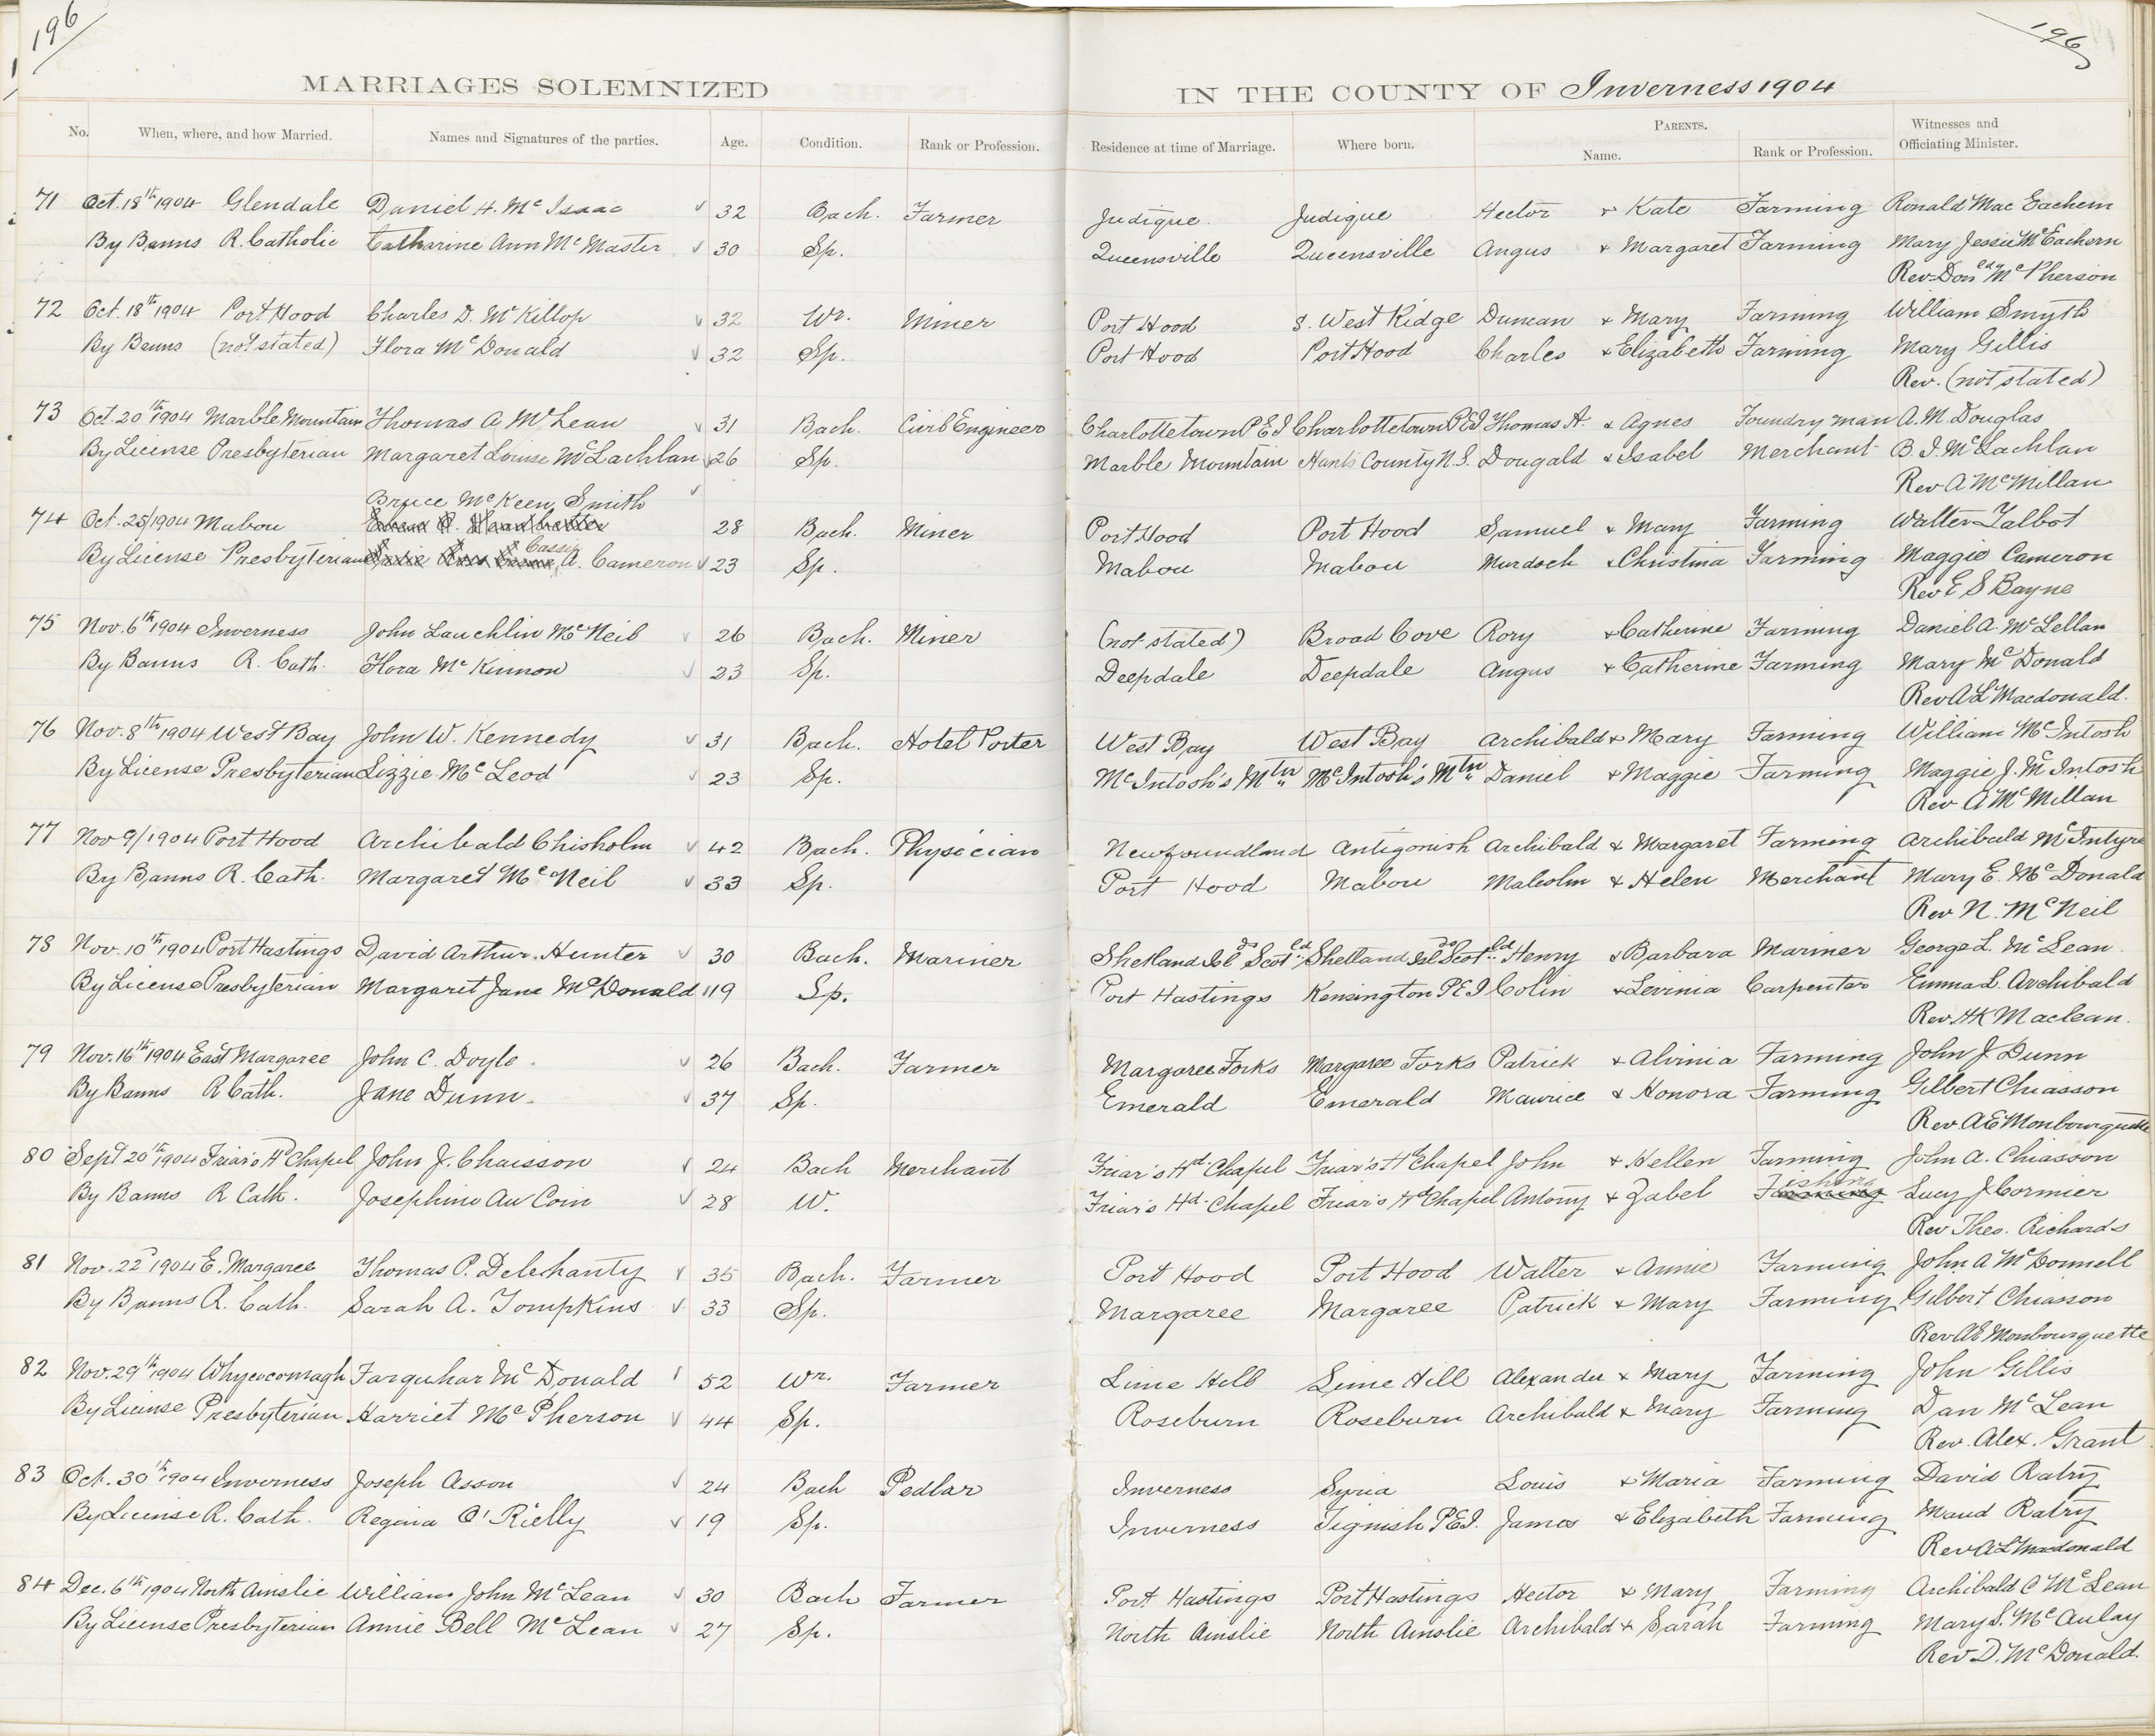 196
196
MARRIAGES SOLEMNIZED IN THE COUNTY OF Inverness 1904
No. When, where, and how Married. Names and Signatures of the parties. Age. Condition. Rank or Profession. Residence at time of Marriage. Where born. PARENTS. Name. Rank or Profession. Witnesses and Officiating Minister.
71 Oct. 18th 1904 Glendale Daniel H. McIsaac 32 Bach. Farmer Judique Judique Hector & Kate Farming Ronald MacEachern
By Banns R. Catholic Catharine Ann McMaster 30 Sp. Queensville Queensville Angus & Margaret Farming Mary Jessie McEachern
Rev. Don'ld McPherson
72 Oct. 18th 1904 Port Hood Charles D. McKillop 32 Wr. Miner Port Hood S. West Ridge Duncan & Mary Farming William Smyth
By Banns (not stated) Flora McDonald 32 Sp. Port Hood Port Hood Charles & Elizabeth Farming Mary Gillis
Rev. (not stated)
73 Oct. 20th 1904 Marble Mountain Thomas A McLean 31 Bach. Civil Engineer Charlottetown P E I Charlottetown P E I Thomas A. & Agnes Foundry man A. M. Douglas
By License Presbyterian Margaret Louise McLachlan 26 Sp. Marble Mountain Hants County N. S. Dougald & Isabel Merchant B. I. McLachlan
Rev A McMillan
Bruce McKeen Smith
74 Oct. 25/1904 Mabou 28 Bach. Miner Port Hood Port Hood Samuel & Mary Farming Walter Talbot
By License Presbyterian Cassie A. Cameron 23 Sp. Mabou Mabou Murdoch & Christina Farming Maggie Cameron
Rev E S Bayne
75 Nov. 6th 1904 Inverness John Lauchlin McNeil 26 Bach. Miner (not stated) Broad Cove Rory & Catherine Farming Daniel A. McLellan
By Banns R. Cath. Flora McKinnon 23 Sp. Deepdale Deepdale Angus & Catherine Farming Mary McDonald
Rev A L Macdonald.
76 Nov. 8th 1904 West Bay John W. Kennedy 31 Bach. Hotel Porter West Bay West Bay Archibald & Mary Farming William McIntosh
By License Presbyterian Lizzie McLeod 23 Sp. McIntosh's Mtn McIntosh's Mtn Daniel & Maggie Farming Maggie J. McIntosh
Rev A McMillan
77 Nov 9/1904 Port Hood Archibald Chisholm 42 Bach. Physician Newfoundland Antigonish Archibald & Margaret Farming Archibald McIntyre
By Banns R. Cath. Margaret McNeil 33 Sp. Port Hood Mabou Malcolm & Helen Merchant Mary E. McDonald
Rev N. McNeil
78 Nov. 10th 1904 Port Hastings David Arthur Hunter 30 Bach. Mariner Shetland Isl'ds Scot'l'd Shetland Isl'ds Scot'l'd Henry & Barbara Mariner George L. McLean
By License Presbyterian Margaret Jane McDonald 19 Sp. Port Hastings Kensington P E I Colin & Levinia Carpenter Emma L. Archibald
Rev. H K Maclean.
79 Nov. 16th 1904 East Margaree John C. Doyle 26 Bach. Farmer Margaree Forks Margaree Forks Patrick & Alvinia Farming John J Dunn
By Banns R Cath. Jane Dunn 37 Sp. Emerald Emerald Maurice & Honora Farming Gilbert Chiasson
Rev A E Monbourquette
80 Sept 20th 1904 Friar's Hd Chapel John J. Chaisson 24 Bach Merchant Friar's Hd. Chapel Friar's Hd Chapel John & Hellen Farming John A. Chiasson
By Banns R Cath. Josephine Au Coin 28 W. Friar's Hd. Chapel Friar's Hd Chapel Antony & Zabel Fishing Lucy J Cormier
Rev Theo. Richards
81 Nov. 22d 1904 E. Margaree Thomas P. Delehanty 35 Bach. Farmer Port Hood Port Hood Walter & Annie Farming John A McDonnell
By Banns R. Cath. Sarah A. Tompkins 33 Sp. Margaree Margaree Patrick & Mary Farming Gilbert Chiasson
Rev A E Monbourquette
82 Nov. 29th 1904 Whycocomagh Farquhar McDonald 52 Wr. Farmer Lime Hill Lime Hill Alexander & Mary Farming John Gillis
By License Presbyterian Harriet McPherson 44 Sp. Roseburn Roseburn Archibald & Mary Farming Dan McLean
Rev. Alex. Grant
83 Oct. 30th 1904 Inverness Joseph Asson 24 Bach Pedlar Inverness Syria Louis & Maria Farming David Ratry
By License R. Cath. Regina O'Rielly 19 Sp. Inverness Tignish P.E.I. James & Elizabeth Farming Maud Ratry
Rev A L Macdonald
84 Dec. 6th 1904 North Ainslie William John McLean 30 Bach Farmer Port Hastings Port Hastings Hector & Mary Farming Archibald C McLean
By License Presbyterian Annie Bell McLean 27 Sp. North Ainslie North Ainslie Archibald & Sarah Farming Mary S. McAulay
Rev D. McDonald.